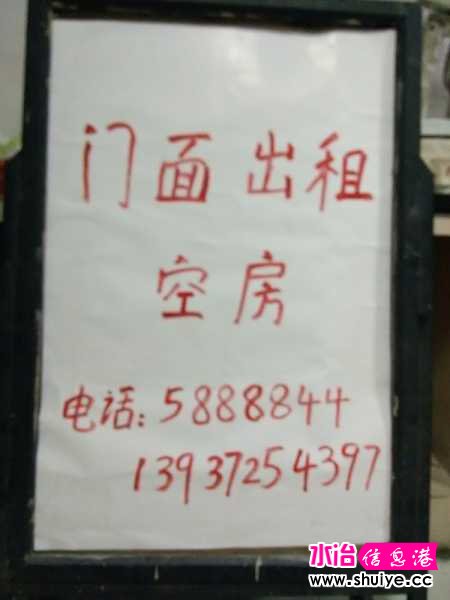 门面出租
空房
电话:5888844
13937254397
水冶信息港
www.shuiye.cc